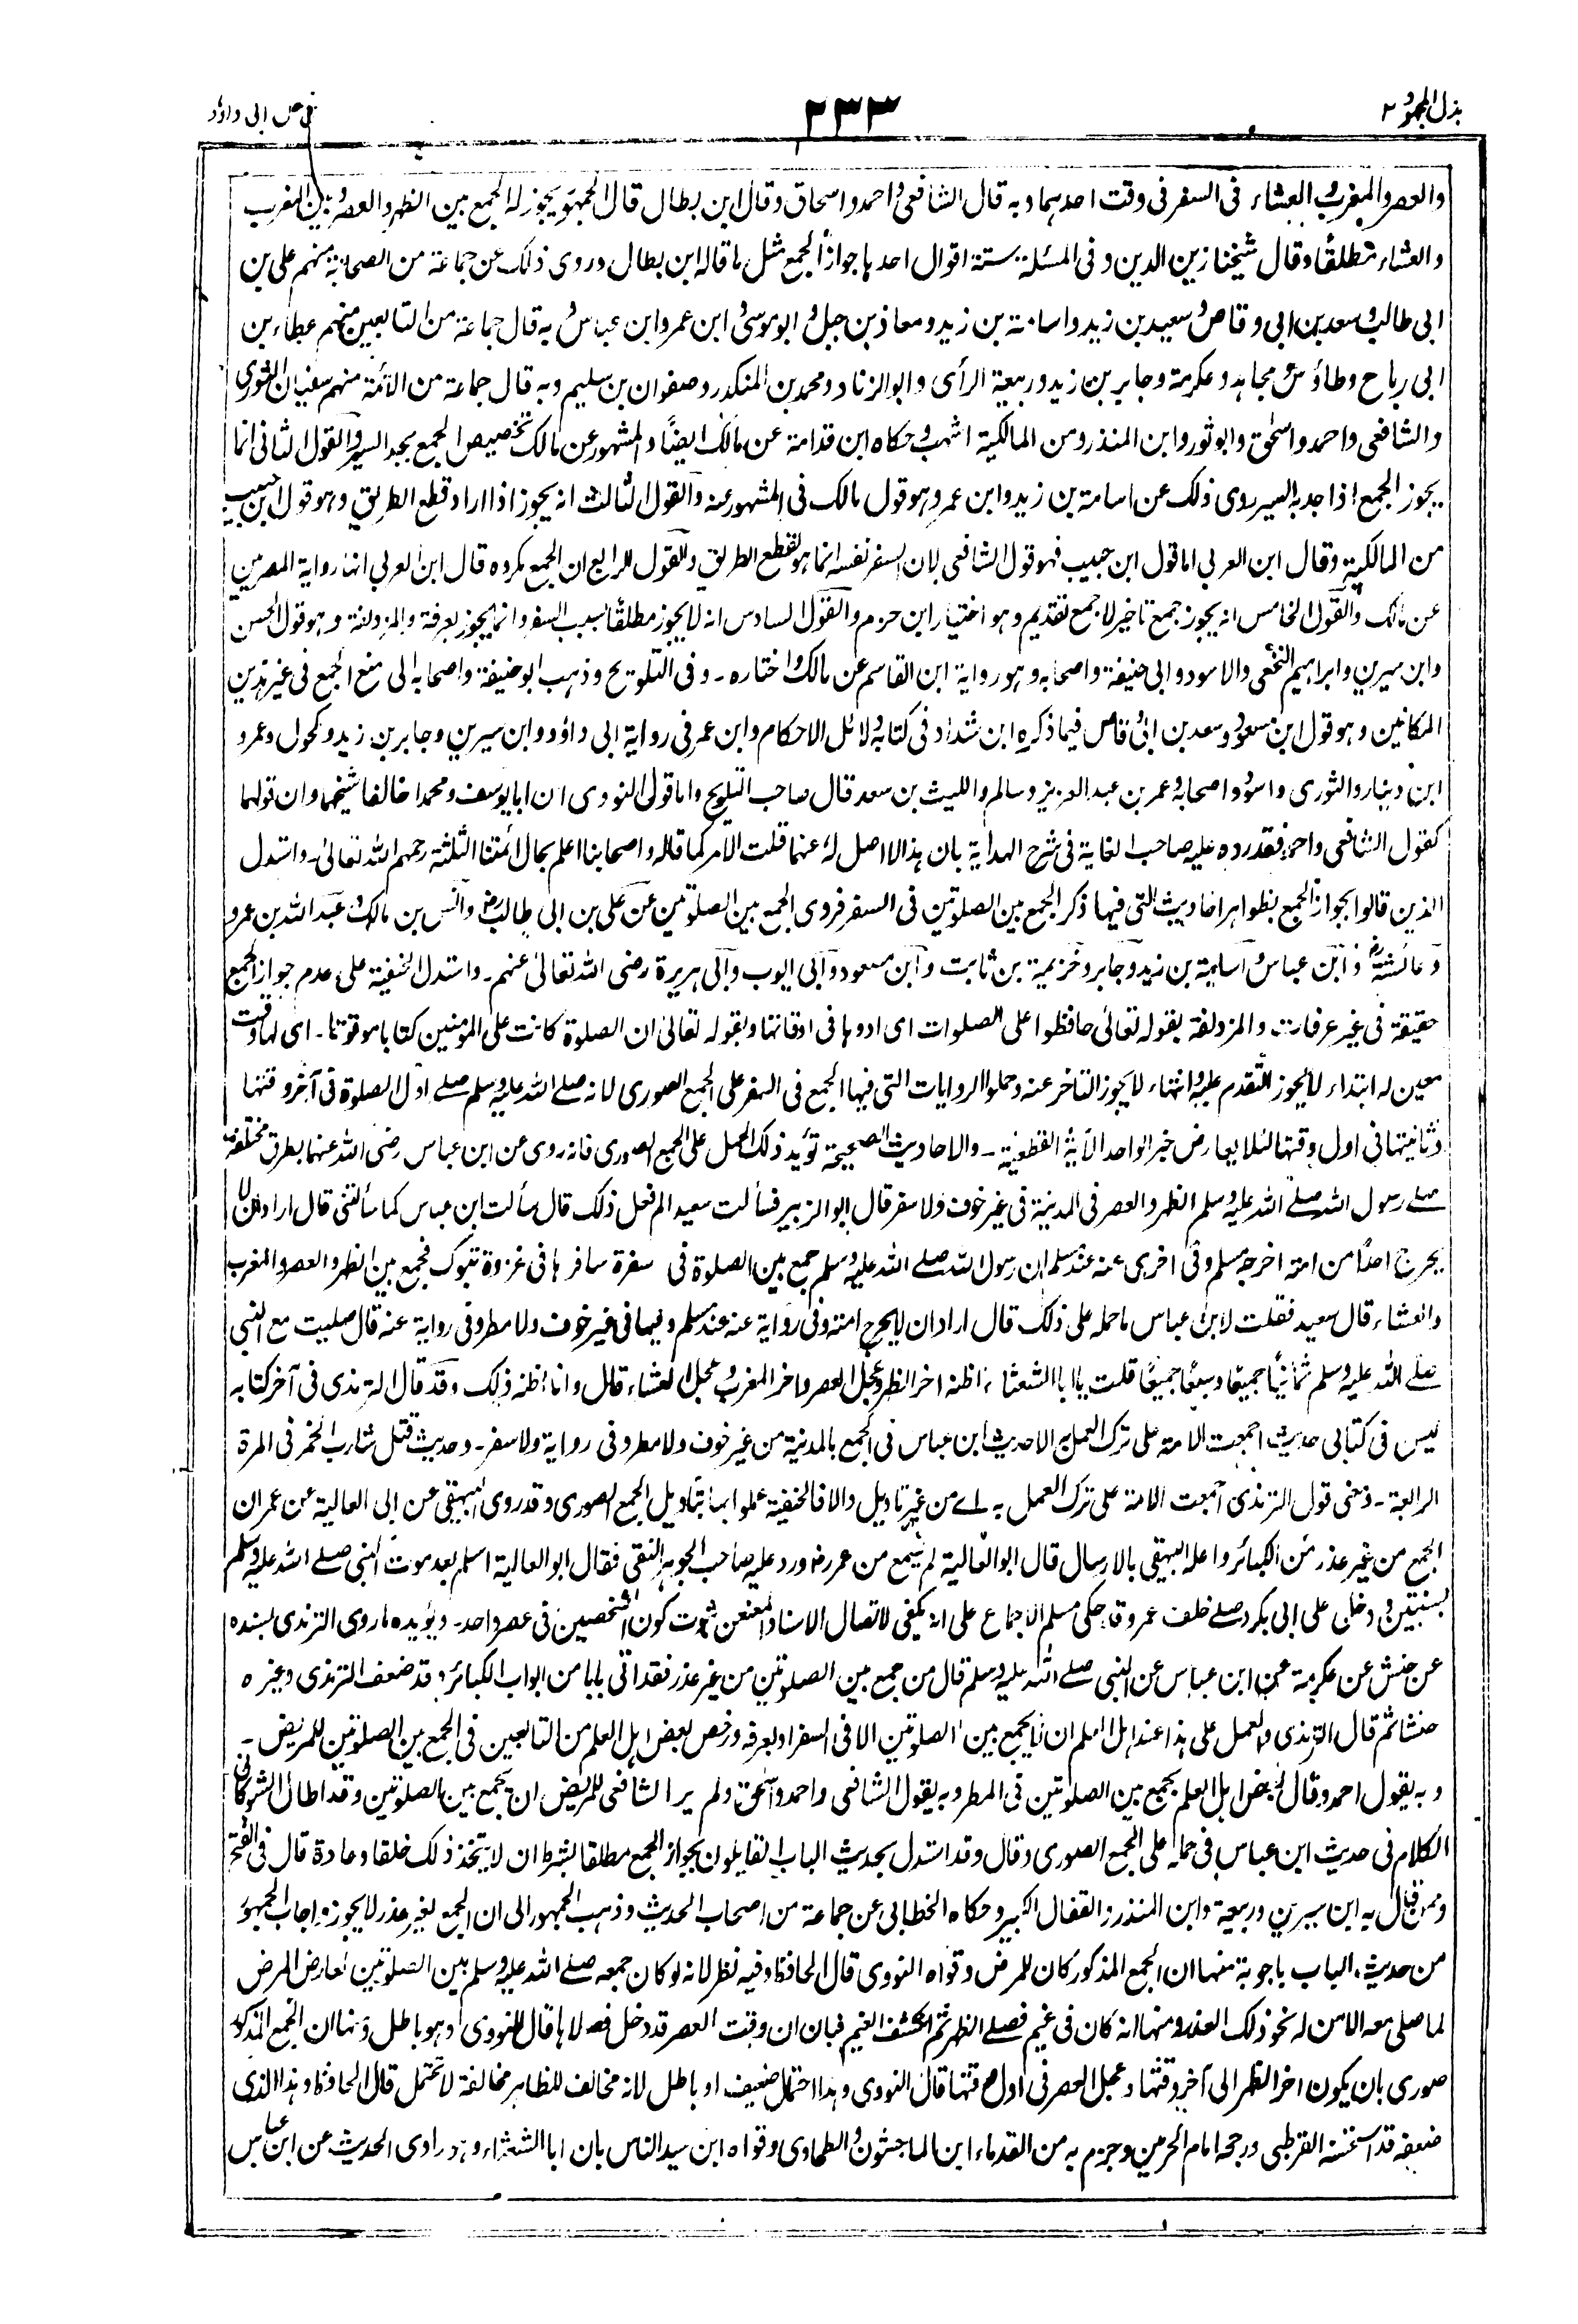 بذل المجهود ٢
٢٣٣
في حل ابى داؤد
والعصر والمغرب والعشاء فى السفر فى وقت احدهما وبه قال الشافعى واحمد واسحاق وقال ابن بطال قال الجمهور يجوز له الجمع بين الظهر والعصر وبين المغرب
والعشاء مطلقا وقال شيخنا زين الدين وفى المسئلة ستة اقوال احدها جواز الجمع مثل ما قاله ابن بطال وروى ذلك عن جماعة من الصحابة منهم على بن
ابى طالب وسعد بن ابى وقاص وسعيد بن زيد واسامة بن زيد ومعاذ بن جبل وابو موسى وابن عمر وابن عباس وبه قال جماعة من التابعين منهم عطاء بن
ابى رباح وطاؤس ومجاهد وعكرمة وجابر بن زيد وربيعة الرأى وابو الزناد ومحمد بن المنكدر وصفوان بن سليم وبه قال جماعة من الائمة منهم سفيان الثورى
والشافعى واحمد واسحق وابو ثور وابن المنذر ومن المالكية اشهب وحكاه ابن قدامة عن مالك ايضا والمشهور عن مالك تخصيص الجمع بجد السير والقول الثانى انما
يجوز الجمع اذا جد به السير روى ذلك عن اسامة بن زيد وابن عمر وهو قول مالك فى المشهور عنه والقول الثالث انه يجوز اذا اراد قطع الطريق وهو قول ابن حبيب
من المالكية وقال ابن العربى اما قول ابن حبيب فهو قول الشافعى لان السفر نفسه انما هو لقطع الطريق والقول الرابع ان الجمع مكروه قال ابن العربى انها رواية المصريين
عن مالك والقول الخامس انه يجوز جمع تاخير لا جمع تقديم وهو اختيار ابن حزم والقول السادس انه لا يجوز مطلقا بسبب السفر وانما يجوز بعرفة والمزدلفة وهو قول الحسن
وابن سيرين وابراهيم النخعى والاسود وابى حنيفة واصحابه وهو رواية ابن القاسم عن مالك واختاره ۔ وفى التلويح وذهب ابو حنيفة واصحابه الى منع الجمع فى غير هذين
المكانين وهو قول ابن مسعود وسعد بن ابى وقاص فيما ذكره ابن شداد فى كتابه دلائل الاحكام وابن عمر فى رواية ابى داؤد وابن سيرين وجابر بن زيد ومكحول وعمرو
ابن دينار والثورى واسود واصحابه وعمر بن عبد العزيز وسالم والليث بن سعد قال صاحب التلويح واما قول النووى ان ابا يوسف ومحمدا خالفا شيخهما وان قولهما
كقول الشافعى واحمد فقد رده عليه صاحب الغاية فى شرح الهداية بان هذا لا اصل له عنهما قلت الامر كما قاله واصحابنا اعلم بحال ائمتنا الثلثة رحمهم الله تعالى ۔ واستدل
الذين قالوا بجواز الجمع بظواهر احاديث التى فيها ذكر الجمع بين الصلوتين فى السفر فروى الجمع بين الصلوتين عن على بن ابى طالب رض وانس بن مالك وعبد الله بن عمرو
وعائشة رض وابن عباس واسامة بن زيد وجابر وخزيمة بن ثابت وابن مسعود وابى ايوب وابى هريرة رضى الله تعالى عنهم ۔ واستدل الحنفية على عدم جواز الجمع
حقيقة فى غير عرفات والمزدلفة بقوله تعالى حافظوا على الصلوات اى ادوها فى اوقاتها وبقوله تعالى ان الصلوة كانت على المؤمنين كتابا موقوتا ۔ اى لها وقت
معين له ابتداء لا يجوز التقدم عليه وانتهاء لا يجوز التاخر عنه وحملوا الروايات التى فيها الجمع فى السفر على الجمع الصورى لانه صلى الله عليه وسلم صلى اول الصلوة فى آخر وقتها
وثانيتها فى اول وقتها لئلا يعارض خبر الواحد الآية القطعية ۔ والاحاديث الصحيحة تؤيد ذلك الحمل على الجمع الصورى فانه روى عن ابن عباس رضى الله عنهما بطرق مختلفة
صلى رسول الله صلى الله عليه وسلم الظهر والعصر فى المدينة فى غير خوف ولا سفر قال ابو الزبير فسألت سعيد الم فعل ذلك قال سألت ابن عباس كما سألتنى قال اراد ان لا
يحرج احدا من امته اخرجه مسلم وفى اخرى عنه عند مسلم ان رسول الله صلى الله عليه وسلم جمع بين الصلوة فى سفرة سافرها فى غزوة تبوك فجمع بين الظهر والعصر والمغرب
والعشاء قال سعيد فقلت لابن عباس ما حمله على ذلك قال اراد ان لا يحرج امته وفى رواية عنه عند مسلم وفيها فى غير خوف ولا مطر وفى رواية عنه قال صليت مع النبى
صلى الله عليه وسلم ثمانيا جميعا وسبعا جميعا قلت يا ابا الشعثاء اظنه اخر الظهر وعجل العصر واخر المغرب وعجل العشاء قال وانا اظنه ذلك وقد قال الترمذى فى آخر كتابه
ليس فى كتابى حديث اجمعت الامة على ترك العمل به الا حديث ابن عباس فى الجمع بالمدينة من غير خوف ولا مطر وفى رواية ولا سفر ۔ وحديث قتل شارب الخمر فى المرة
الرابعة ۔ ومعنى قول الترمذى اجمعت الامة على ترك العمل به اے من غير تاويل والا فالحنفية عملوا بها بتاويل الجمع الصورى وقد روى البيهقى عن ابى العالية عن عمر ان
الجمع من غير عذر من الكبائر واعله البيهقى بالارسال قال ابو العالية لم يسمع من عمر رض ورد عليه صاحب الجوهر النقى فقال ابو العالية اسلم بعد موت النبى صلى الله عليه وسلم
بسنتين ودخل على ابى بكر وصلى خلف عمر وقد حكى مسلم الاجماع على انه يكفى لاتصال الاسناد المعنعن ثبوت كون الشخصين فى عصر واحد ۔ ويؤيده ما روى الترمذى بسنده
عن حنش عن عكرمة عن ابن عباس عن النبى صلى الله عليه وسلم قال من جمع بين الصلوتين من غير عذر فقد اتى بابا من ابواب الكبائر وقد ضعف الترمذى وغيره
حنشا ثم قال الترمذى والعمل على هذا عند اهل العلم ان لا يجمع بين الصلوتين الا فى السفر او بعرفة ورخص بعض اهل العلم من التابعين فى الجمع بين الصلوتين للمريض ۔
وبه يقول احمد وقال بعض اهل العلم يجمع بين الصلوتين فى المطر وبه يقول الشافعى واحمد واسحق ولم ير الشافعى للمريض ان يجمع بين الصلوتين وقد اطال الشوكانى
الكلام فى حديث ابن عباس فى حمله على الجمع الصورى وقال وقد استدل بحديث الباب القايلون بجواز الجمع مطلقا بشرط ان لا يتخذ ذلك خلقا وعادة قال فى الفتح
وممن قال به ابن سيرين وربيعة وابن المنذر والقفال الكبير وحكاه الخطابى عن جماعة من اصحاب الحديث وذهب الجمهور الى ان الجمع لغير عذر لا يجوز واجاب الجمهور
من حديث الباب باجوبة منها ان الجمع المذكور كان للمرض وقواه النووى قال الحافظ وفيه نظر لانه لو كان جمعه صلى الله عليه وسلم بين الصلوتين لعارض المرض
لما صلى معه الا من له نحو ذلك العذر ومنها انه كان فى غيم فصلى الظهر ثم انكشف الغيم فبان ان وقت العصر قد دخل فصلاها قال النووى وهو باطل ومنها ان الجمع المذكور
صورى بان يكون اخر الظهر الى آخر وقتها وعجل العصر فى اول وقتها قال النووى وهذا احتمال ضعيف او باطل لانه مخالف للظاهر مخالفة لا تحتمل قال الحافظ وهذا الذى
ضعفه قد استحسنه القرطبى ورجحه امام الحرمين وجزم به من القدماء ابن الماجشون والطحاوى وقواه ابن سيد الناس بان ابا الشعثاء وهو راوى الحديث عن ابن عباس